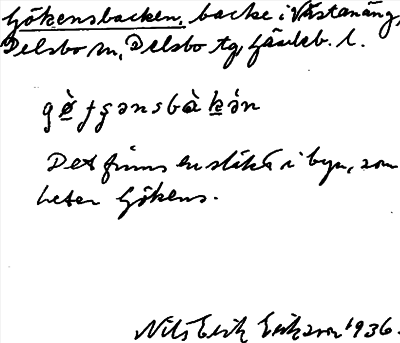 Gökensbacken, backe i Västanäng,
Delsbo sn, Delsbo tg Gävleb. l.
Det finns en släkt i byn, som
heter Gökens.
Nils Erik Eriksson 1936.